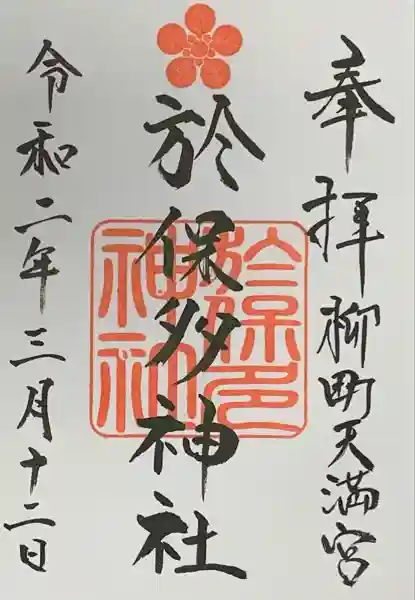 奉拝 柳町天満宮
於保多神社
於保多神社
令和二年三月十二日